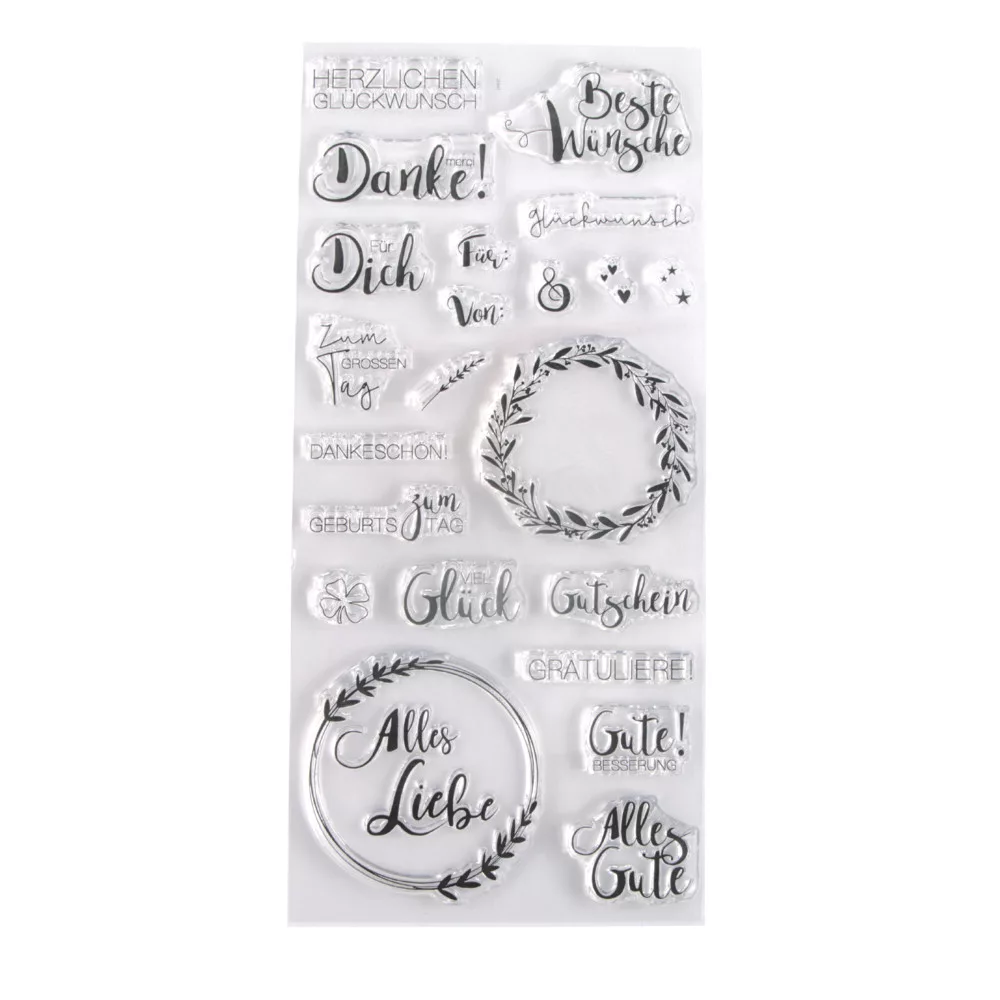 HERZLICHEN
GLÜCKWUNSCH
Beste
Wünsche
merci
Danke!
glückwunsch
Für
Dich
Für:
Von:
&
Zum
GROSSEN
Tag
DANKESCHÖN!
zum
GEBURTS TAG
VIEL
Glück
Gutschein
GRATULIERE!
Alles
Liebe
Gute!
BESSERUNG
Alles
Gute